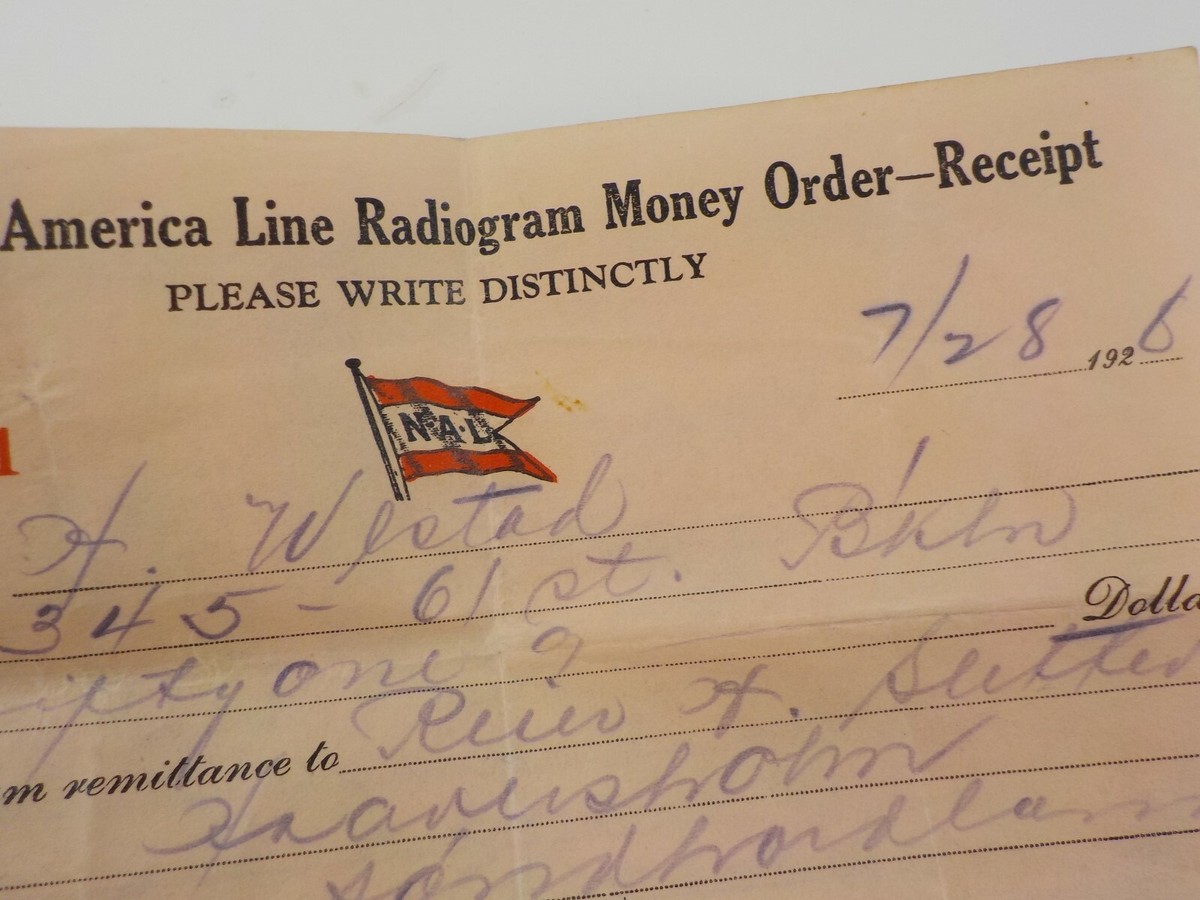 America Line Radiogram Money Order—Receipt
PLEASE WRITE DISTINCTLY
7/28 1926
N·A·L
A. Westad B'kln
345 - 61 st.
Dolla
ifty one
m remittance to A.